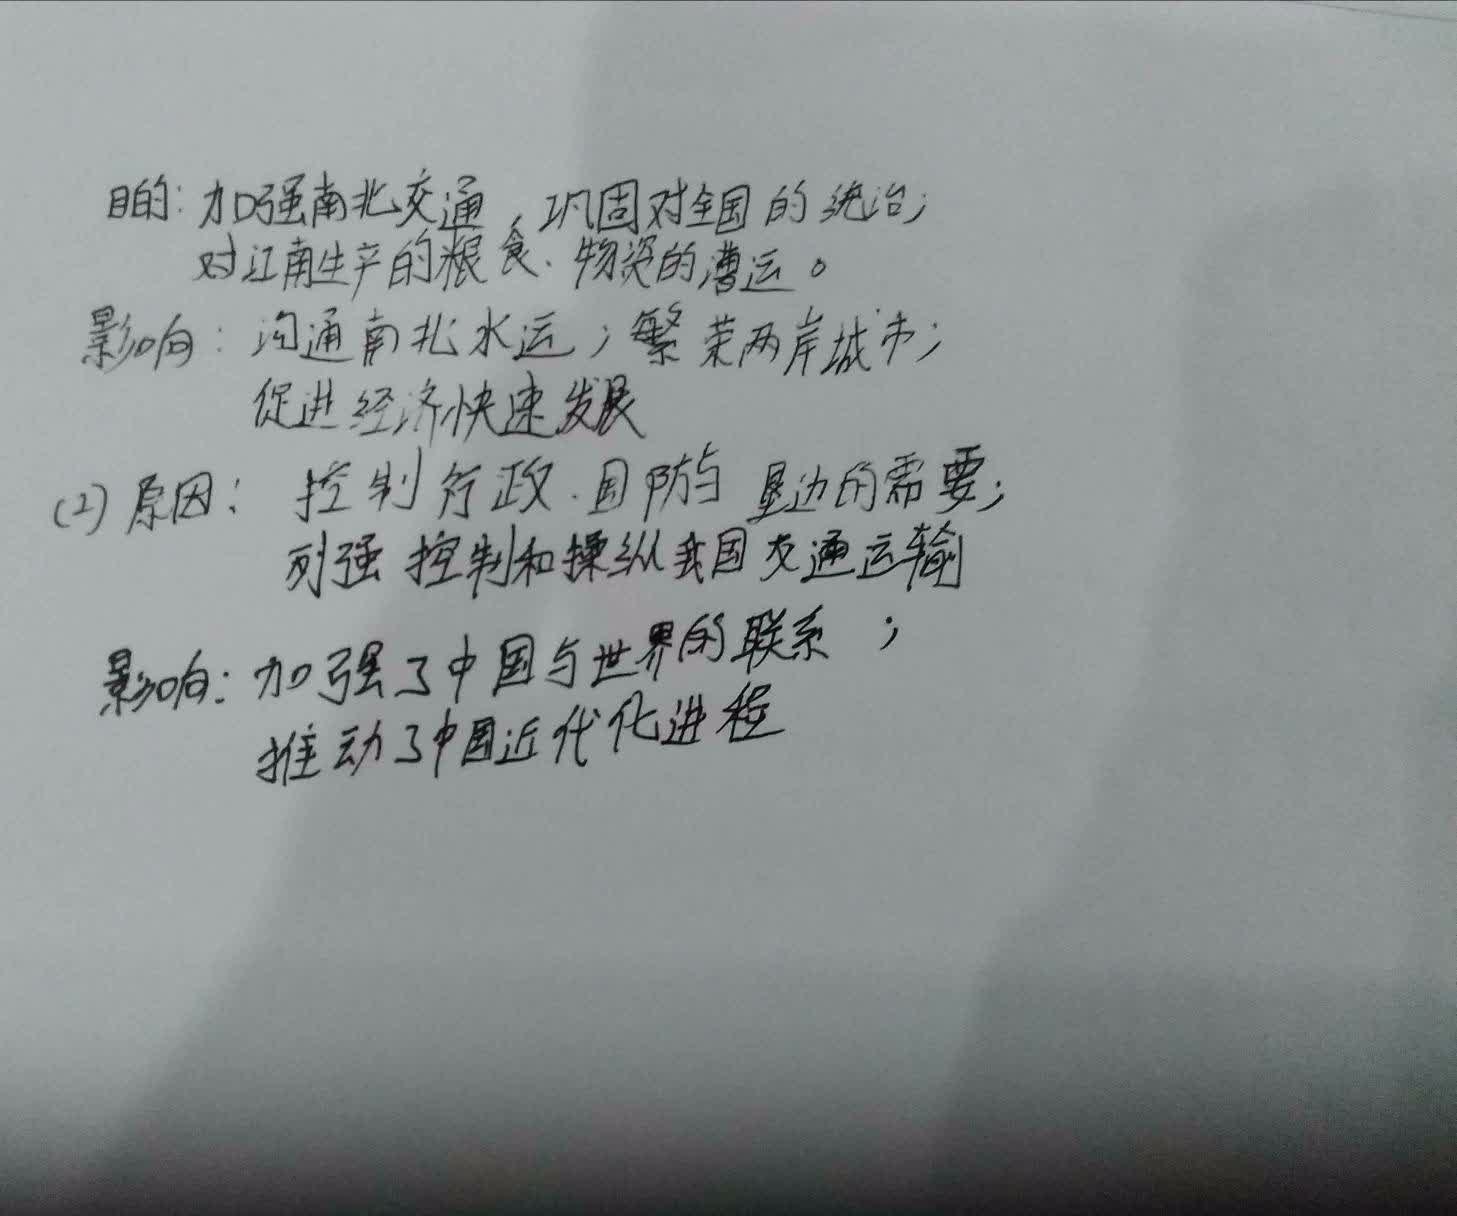 目的：加强南北交通，巩固对全国的统治；
对江南生产的粮食、物资的漕运。
影响：沟通南北水运；繁荣两岸城市；
促进经济快速发展
(2) 原因：控制行政、国防与垦边的需要；
列强控制和操纵我国交通运输
影响：加强了中国与世界的联系；
推动了中国近代化进程